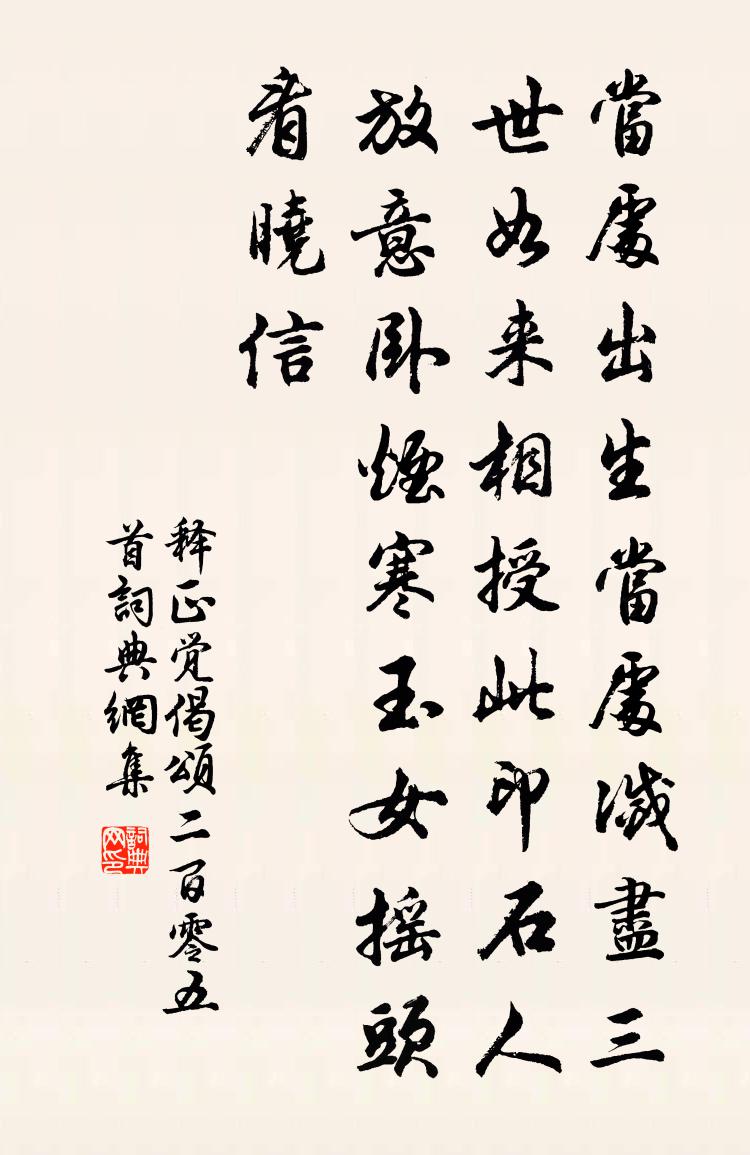 當處出生當處滅盡三
世如来相授此印石人
放意卧煙寒玉女摇頭
看曉信
释正觉偈頌二百零五
首詞典網集
詞典网印